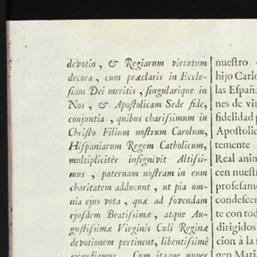 devotio, & Regiarum virtutum
decora, cum præclaris in Eccle-
siam Dei meritis, singularique in
Nos, & Apostolicam Sede fide,
conjuntia, quibus charissimum in
Christo Filium nostrum Carolum,
Hispaniarum Regem Catholicum,
multiplicitèr insignivit Altissi-
mus, paternam nostram in eum
charitatem adducunt, ut pia om-
nia ejus vota, quæ ad fovendam
ejusdem Beatissimæ, atque Au-
gustissimæ Virginis Cœli Reginæ
devotionem pertinent, libentissimè
exaudiamus. Cum itaque nuper
nuestro
hijo Carlo
las Españ
nes de vi
fidelidad
Apostolic
temente
Real anim
cen nuest
profesam
condescen
te con tod
dirigidos
cion à la
gen Maria